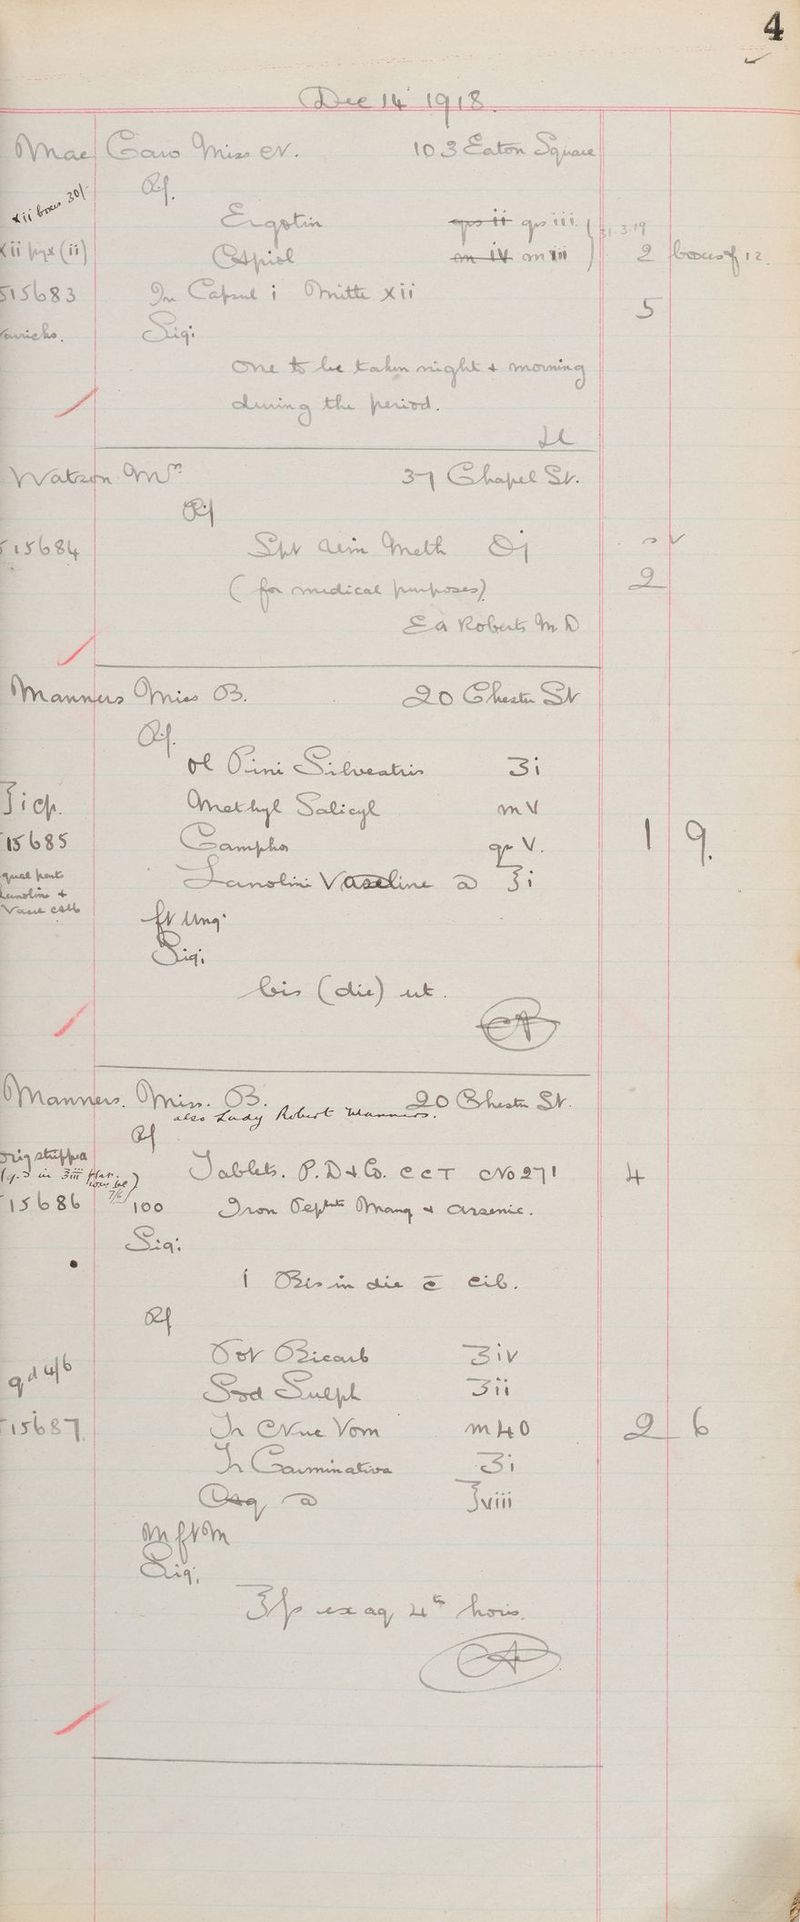 4
Dec 14 1918.
Mac Caw Miss N. 103 Eaton Square
xii boxes 30/-
Rf.
Ergotin grs ii grs iii. 31.3.19
xii pyx (ii) Apiol m iv m iii 2 boxes of 12.
515683 In Capsul i Mitte xii
5
Sig:
one to be taken night & morning
during the period.
Watson Mrs 37 Chapel St.
Rf
15684 Spt Vin Meth Oj
(for medical purposes) 2
Ea Roberts M D
Manners Miss B. 20 Chester St
Rf.
Ol Pini Silvestris ʒi
℥i cp. Methyl Salicyl m V
15685 Camphor gr V. 1 9.
qual parts
Lanoline & Lanolini Vaseline a ℥i
Vaseline
ft Ung.
Sig:
bis (die) ut.
Manners. Miss. B. 20 Chester St.
also Lady Robert Manners.
Rf
Tablets. P. D & Co. C C T No 271 4
15686 100 Iron Pept Mang & Arsenic.
7/6
Sig:
i Bis in die c̄ cib.
Rf
Pot Bicarb ʒiv
qd 4/6
Sod Sulph ʒii
15687 Tr Nuc Vom m 40 2 6
Tr Carminativa ʒi
Aq a ℥viii
M ft M
Sig.
℥ss ex aq 4th horis.